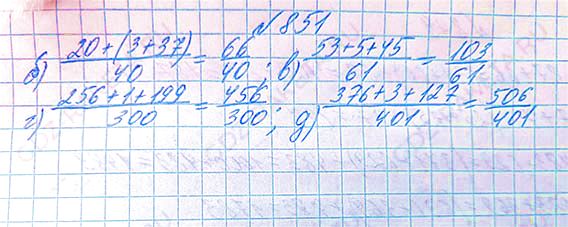 №851
б) (20+(3+37))/40 = 66/40; в) (53+5+45)/61 = 103/61
г) (256+1+199)/300 = 456/300; д) (376+3+127)/401 = 506/401